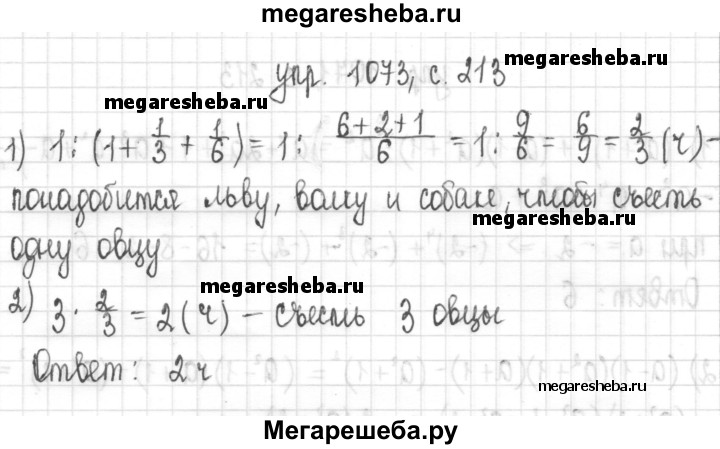 megaresheba.ru
упр. 1073, с. 213
megaresheba.ru
megaresheba.ru
1) 1 : (1 + 1/3 + 1/6) = 1 : (6+2+1)/6 = 1 : 9/6 = 6/9 = 2/3 (ч) –
понадобится льву, волку и собаке, чтобы съесть
megaresheba.ru
одну овцу
megaresheba.ru
2) 3 · 2/3 = 2 (ч) – съесть 3 овцы
Ответ: 2 ч
megaresheba.ru
Мегарешеба.ру